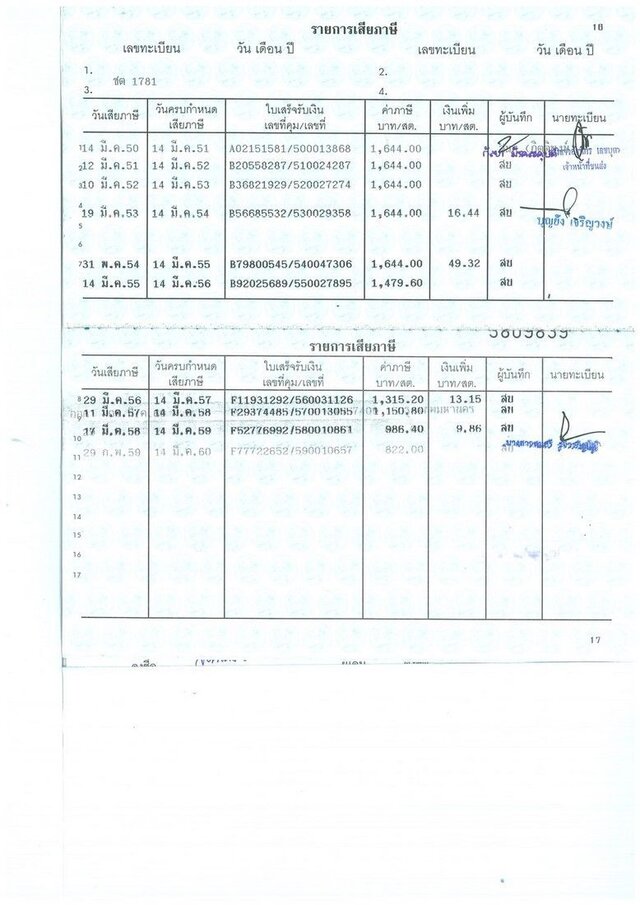 รายการเสียภาษี
16
เลขทะเบียน วัน เดือน ปี เลขทะเบียน วัน เดือน ปี
1. 2.
ชต 1781
3. 4.
วันเสียภาษี วันครบกำหนดเสียภาษี ใบเสร็จรับเงิน เลขที่คุม/เลขที่ ค่าภาษี บาท/สต. เงินเพิ่ม บาท/สต. ผู้บันทึก นายทะเบียน
1 14 มี.ค.50 14 มี.ค.51 A02151581/500013868 1,644.00
เจ้าหน้าที่ขนส่ง
2 12 มี.ค.51 14 มี.ค.52 B20558287/510024287 1,644.00 สย
3 10 มี.ค.52 14 มี.ค.53 B36821929/520027274 1,644.00 สย
4
19 มี.ค.53 14 มี.ค.54 B56685532/530029358 1,644.00 16.44 สย
บุญยัง เจริญวงษ์
5
6
7 31 พ.ค.54 14 มี.ค.55 B79800545/540047306 1,644.00 49.32 สย
14 มี.ค.55 14 มี.ค.56 B92025689/550027895 1,479.60 สย
3809839
รายการเสียภาษี
วันเสียภาษี วันครบกำหนดเสียภาษี ใบเสร็จรับเงิน เลขที่คุม/เลขที่ ค่าภาษี บาท/สต. เงินเพิ่ม บาท/สต. ผู้บันทึก นายทะเบียน
8 29 มี.ค.56 14 มี.ค.57 F11931292/560031126 1,315.20 13.15 สย
9 11 มี.ค.57 14 มี.ค.58 F29374485/570013055 1,150.80 ลย
10 17 มี.ค.58 14 มี.ค.59 F52776992/580010861 986.40 9.86 สย
29 ก.พ.59 14 มี.ค.60 F77722652/590010657 822.00 สย
11
12
13
14
15
16
17
17